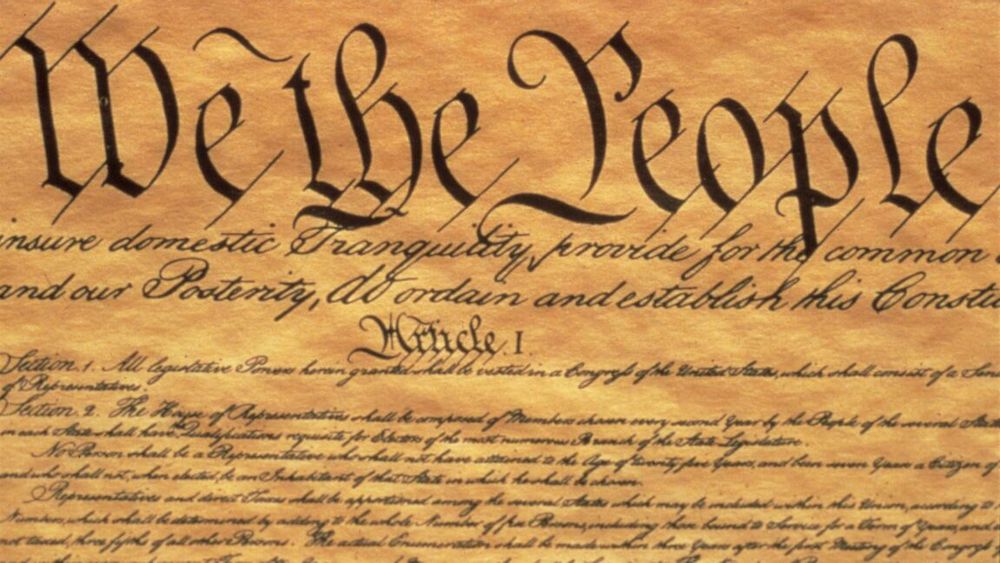 We the People
insure domestic Tranquility, provide for the common
and our Posterity, do ordain and establish this Constit
Article. I.
Section. 1. All legislative Powers herein granted shall be vested in a Congress of the United States, which shall consist of a Sen
of Representatives.
Section. 2. The House of Representatives shall be composed of Members chosen every second Year by the People of the several States
in each State shall have the Qualifications requisite for Electors of the most numerous Branch of the State Legislature.
No Person shall be a Representative who shall not have attained to the Age of twenty five Years, and been seven Years a Citizen of
and who shall not, when elected, be an Inhabitant of that State in which he shall be chosen.
Representatives and direct Taxes shall be apportioned among the several States which may be included within this Union, according to
Numbers, which shall be determined by adding to the whole Number of free Persons, including those bound to Service for a Term of Years, and
not taxed, three fifths of all other Persons. The actual Enumeration shall be made within three Years after the first Meeting of the Congress